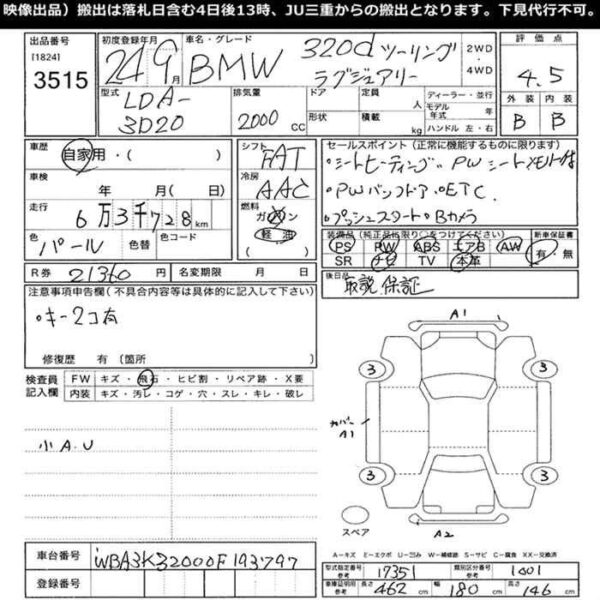 映像出品)搬出は落札日含む4日後13時、JU三重からの搬出となります。下見代行不可。
出品番号
[1824]
3515
初度登録年月
24 9月
車名・グレード
BMW 320d ツーリング
ラグジュアリー
2WD
4WD
評価点
4.5
型式
LDA-
3D20
排気量
2000 CC
ドア
形状
定員 人
積載 kg
ディーラー・並行
モデル年式 年
ハンドル 左・右
外装 内装
B B
車歴
自家用・( )
シフト
FAT
車検
年 月( )
冷房
AAC
走行
6万3千728km
燃料
ガソリン
軽油
色
パール
色替
色コード
R券 21360 円
名変期限 月 日
セールスポイント(正常に機能するものに限ります)
・シートヒーティング PWシートメモリ付
・PWバックドア ・ETC
・プッシュスタート・Bカメラ
装備品(純正品に限り○をつけてください)
PS PW ABS エアB AW
SR ナビ TV 本革
新車保証書
有・無
後日品
取説 保証
注意事項申告欄(不具合内容等は具体的に記入して下さい)
・キー2コ有
修復歴 有(箇所 )
検査員記入欄
FW キズ・飛石・ヒビ割・リペア跡・X要
内装 キズ・汚レ・コゲ・穴・スレ・キレ・破レ
小A.U
A1
3 3
カバー
A1
3 3
スペア
A2
A-キズ E-エクボ U-凹み W-補修跡 S-サビ C-腐食 XX-交換済
車台番号
WBA3K32000F193797
登録番号
型式指定番号 参考
17351
類別区分番号 参考
1001
車庫証明用 参考
長さ 462 cm
幅 180 cm
高さ 146 cm